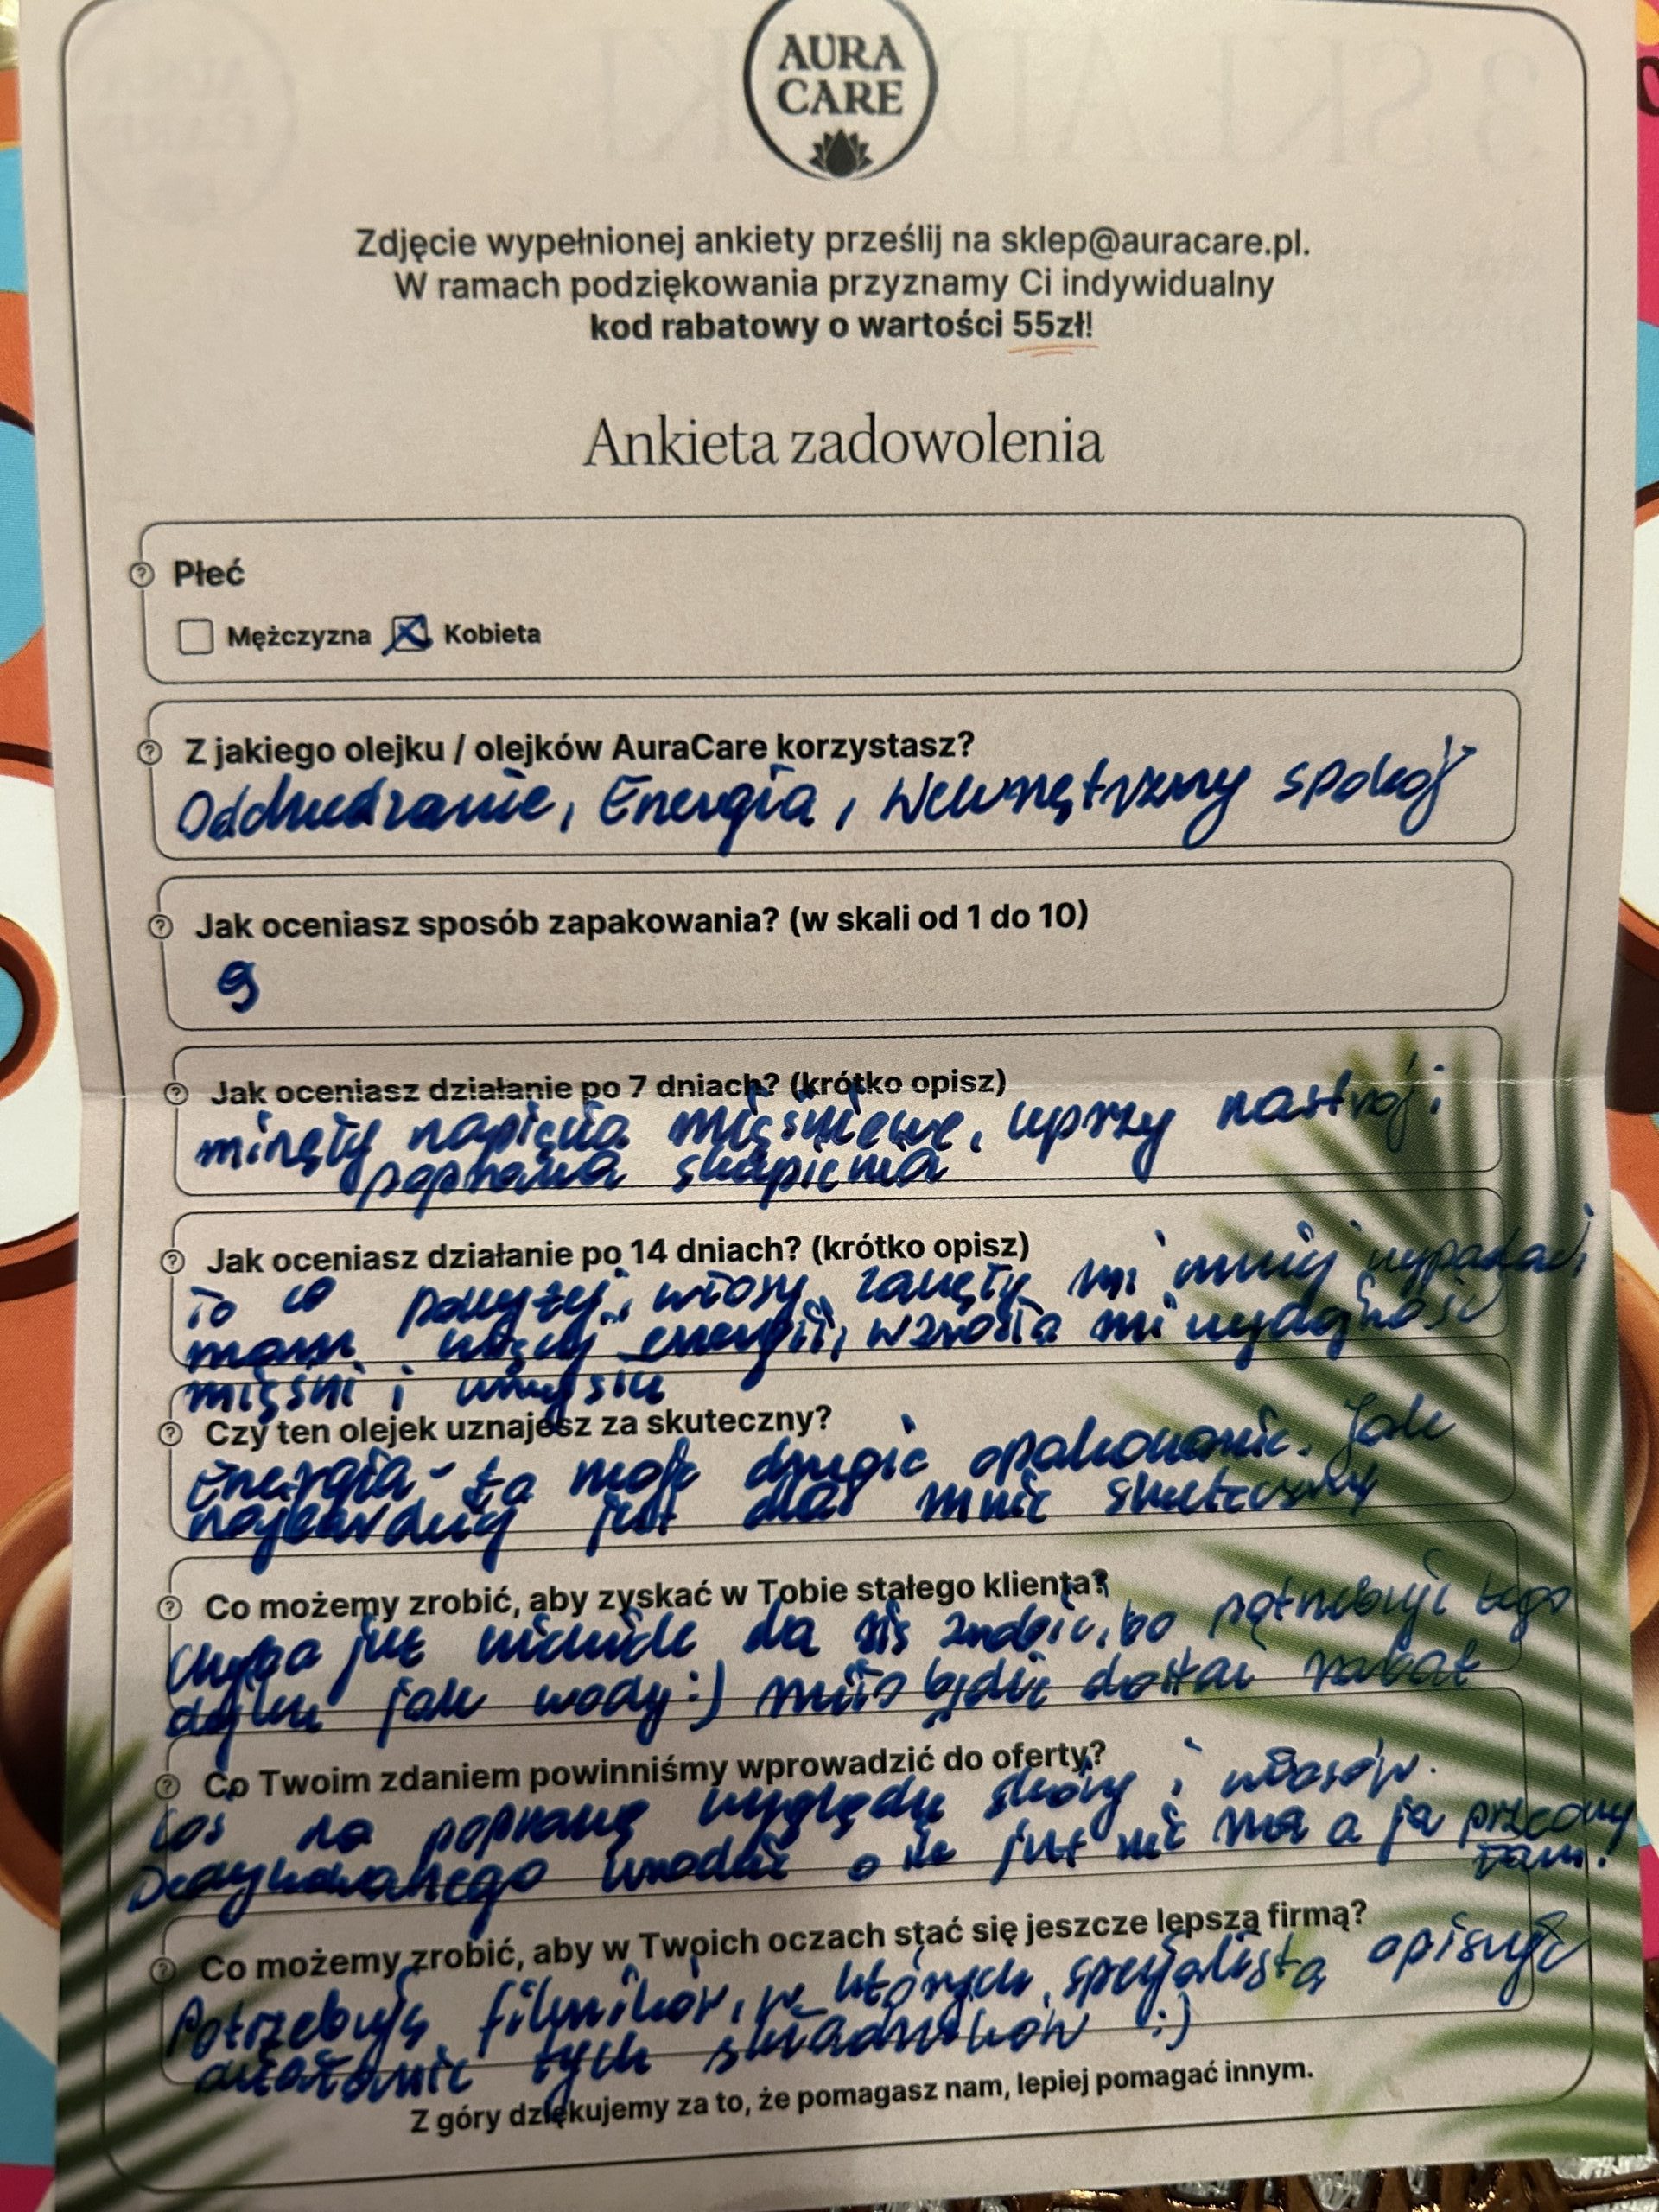 AURA
CARE
Zdjęcie wypełnionej ankiety prześlij na sklep@auracare.pl.
W ramach podziękowania przyznamy Ci indywidualny
kod rabatowy o wartości 55zł!
Ankieta zadowolenia
Płeć
Mężczyzna Kobieta
Z jakiego olejku / olejków AuraCare korzystasz?
Oddchudzanie, Energia, Wewnętrzny spokój
Jak oceniasz sposób zapakowania? (w skali od 1 do 10)
9
Jak oceniasz działanie po 7 dniach? (krótko opisz)
minęły napięcia mięśniowe, lepszy nastrój i
poprawa skupienia
Jak oceniasz działanie po 14 dniach? (krótko opisz)
To co powyżej i włosy zaczęły mi mniej wypadać,
mam więcej energii, wzrosła mi wydajność
mięśni i umysłu
Czy ten olejek uznajesz za skuteczny?
Energia - to moje drugie opakowanie. Jak
najbardziej jest dla mnie skuteczny
Co możemy zrobić, aby zyskać w Tobie stałego klienta?
Chyba już niewiele da się zrobić, bo potrzebuję tego
olejku jak wody :) miło będzie dostać rabat
Co Twoim zdaniem powinniśmy wprowadzić do oferty?
Coś na poprawę wyglądu skóry i włosów.
Dedykowanego urodzie o ile już nie ma a ja przeoczy
łam!
Co możemy zrobić, aby w Twoich oczach stać się jeszcze lepszą firmą?
Potrzebuję filmików, w których specjalista opisuje
działanie tych składników :)
Z góry dziękujemy za to, że pomagasz nam, lepiej pomagać innym.